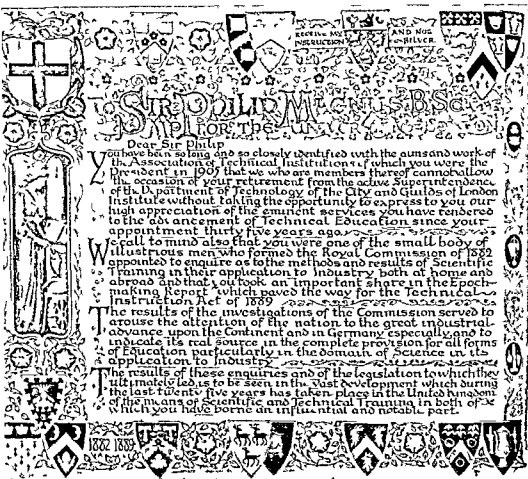 RECEIVE MY INSTRUCTION AND NOT SILVER
TO SIR PHILIP MAGNUS. B.Sc.
M.P. FOR THE
Dear Sir Philip
You have been so long and so closely identified with the aims and work of
the Association of Technical Institutions of which you were the
President in 1905 that we who are members thereof cannot allow
the occasion of your retirement from the active Superintendence
of the Department of Technology of the City and Guilds of London
Institute without taking the opportunity to express to you our
high appreciation of the eminent services you have rendered
to the advancement of Technical Education since your
appointment thirty five years ago
We call to mind also that you were one of the small body of
illustrious men who formed the Royal Commission of 1882
appointed to enquire as to the methods and results of Scientific
Training in their application to Industry both at home and
abroad and that you took an important share in the Epoch-
making Report which paved the way for the Technical
Instruction Act of 1889
The results of the investigations of the Commission served to
arouse the attention of the nation to the great industrial
advance upon the Continent and in Germany especially, and to
indicate its real source in the complete provision for all forms
of Education particularly in the domain of Science in its
application to Industry
The results of these enquiries and of the legislation to which they
ultimately led, is to be seen in the vast development which during
the last twenty five years has taken place in the United Kingdom
of the means of Scientific and Technical Training in both of
which you have borne an influential and notable part.
1882 1889